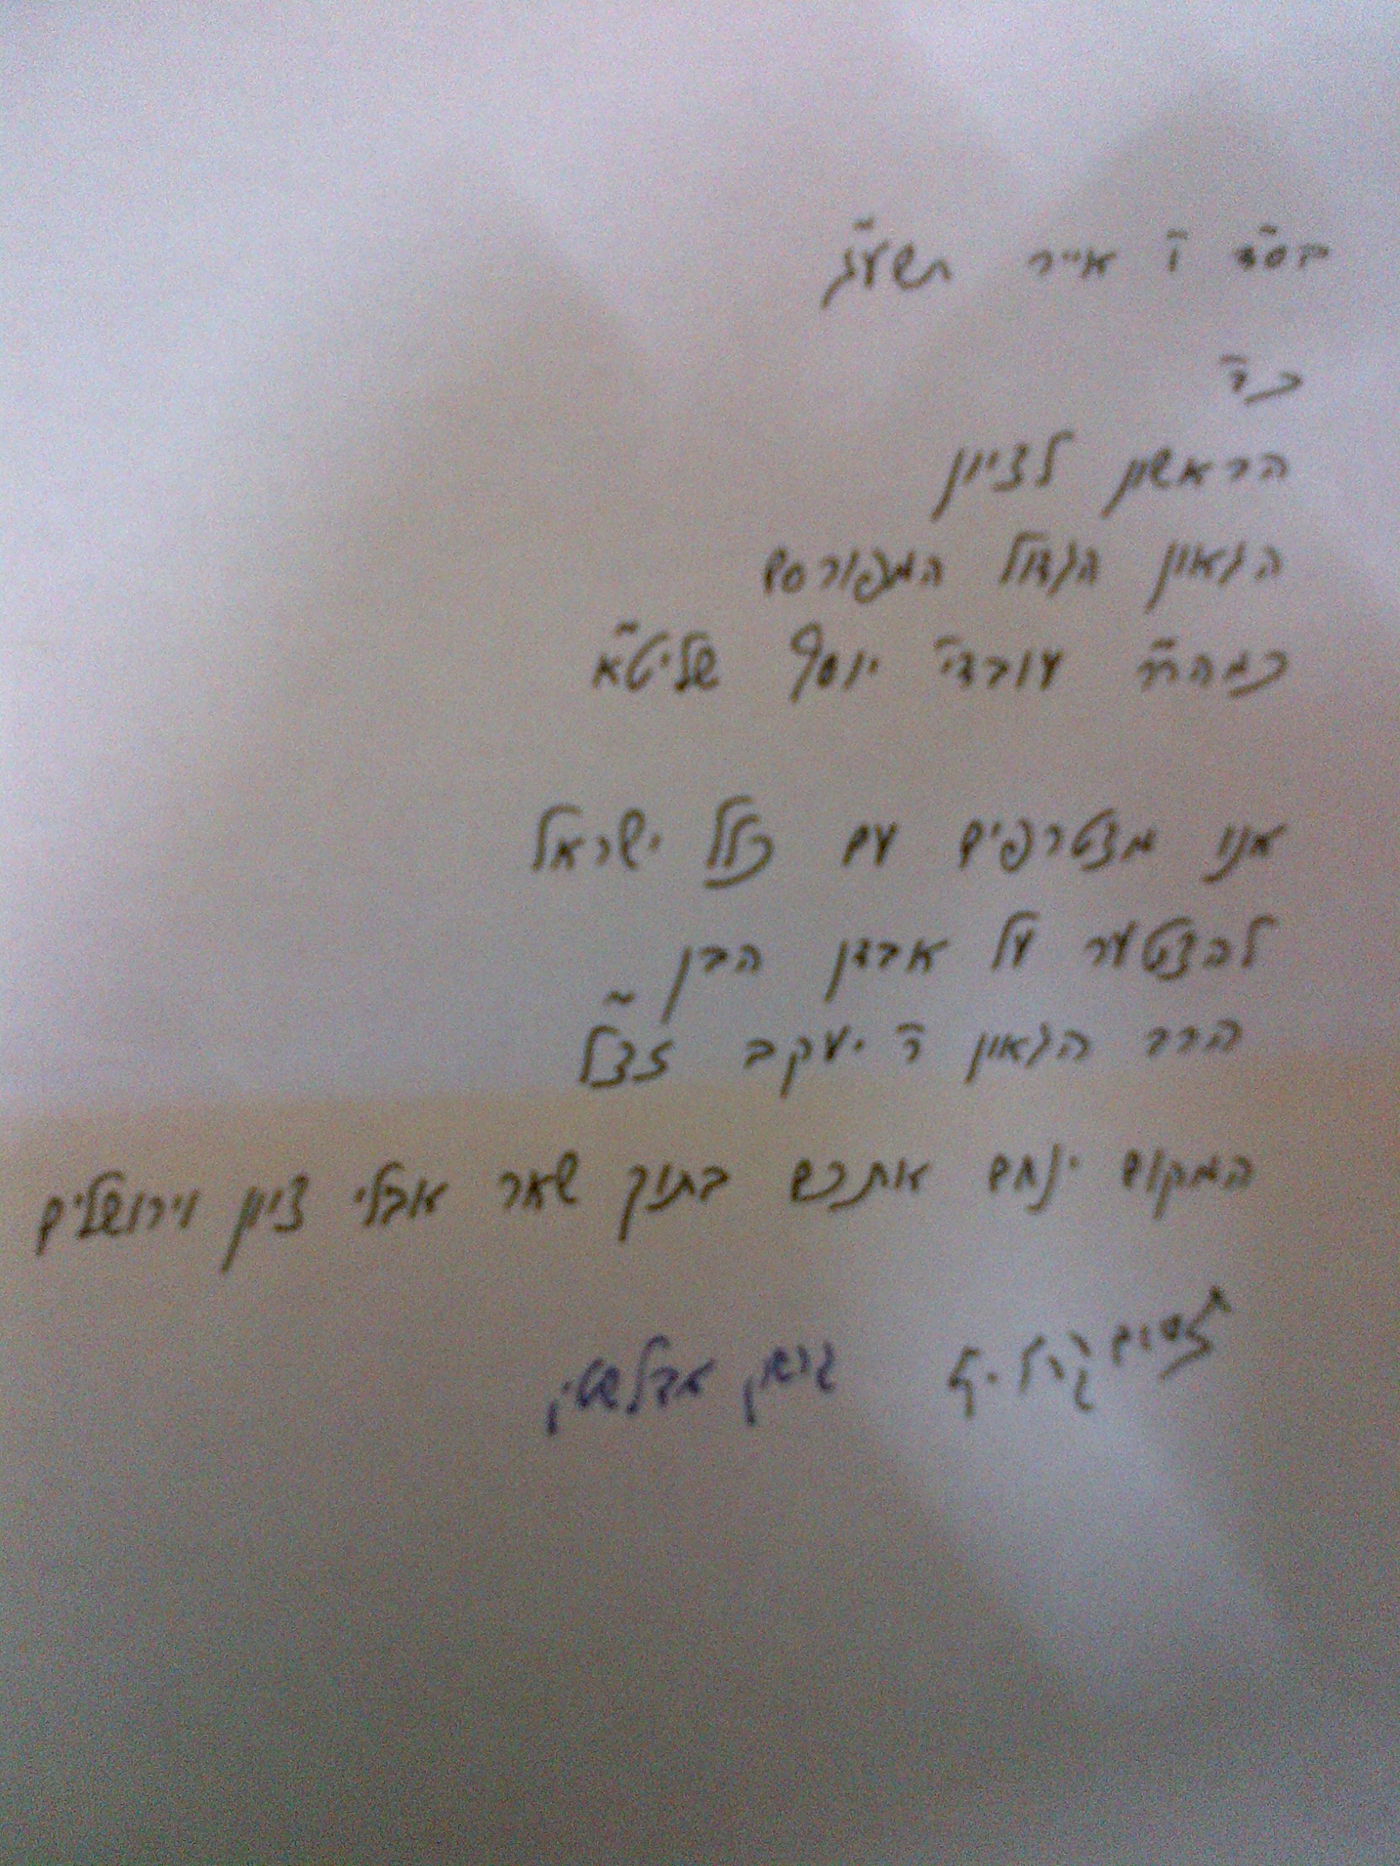 בס"ד ו' אייר תשע"ג
כ"ד
הראשון לציון
הגאון הגדול המפורסם
כמהר"ר עובדי' יוסף שליט"א
אנו מצטרפים עם כלל ישראל
להצטער על אבדן הבן
הרב הגאון ר' יעקב זצ"ל
המקום ינחם אתכם בתוך שאר אבלי ציון וירושלים
גרשון אדלשטיין